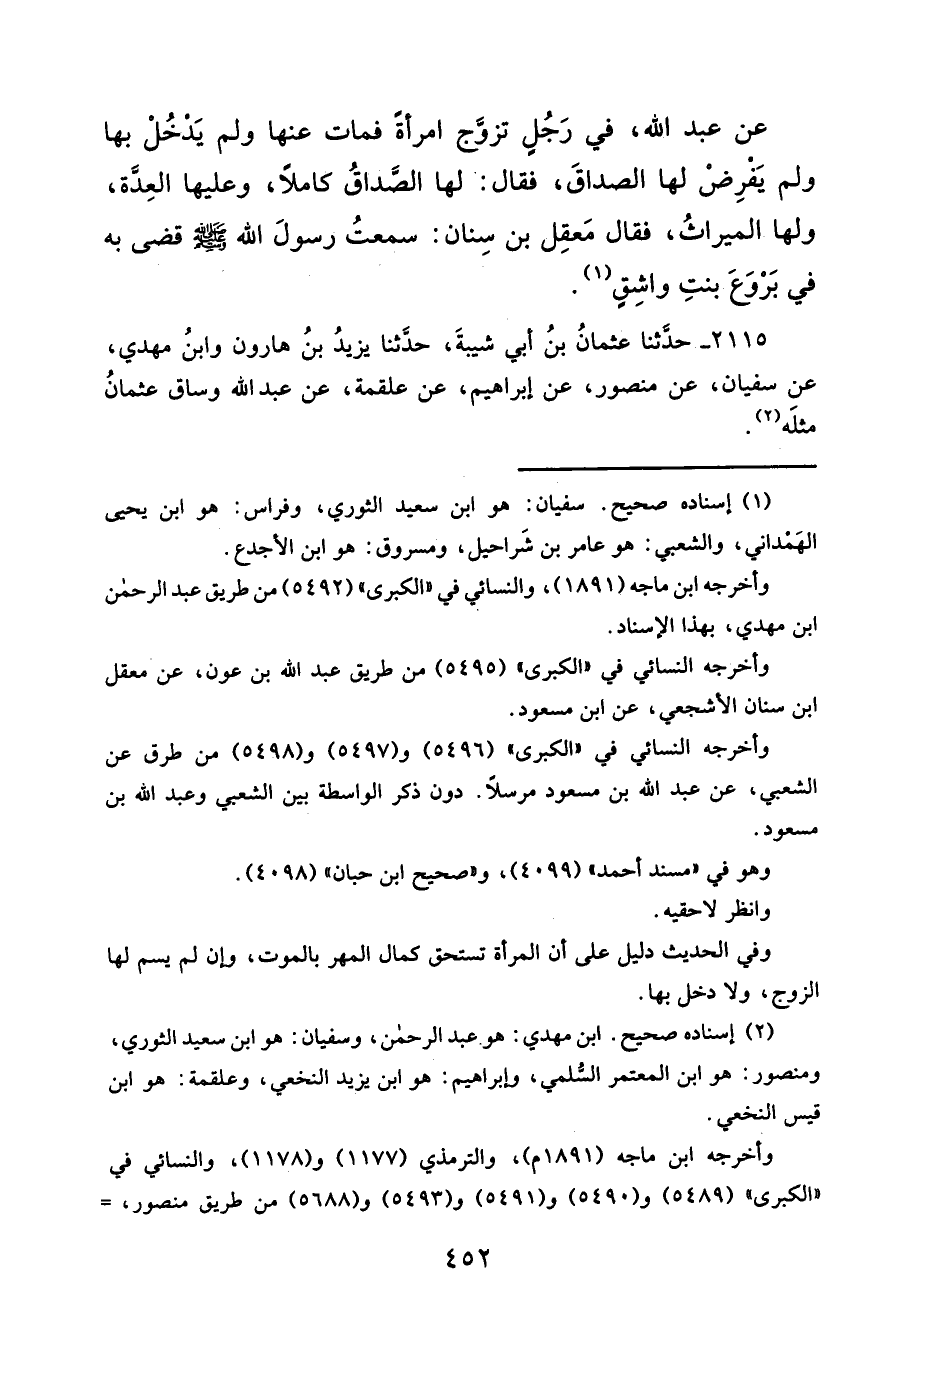 عن عبد الله، في رَجُلٍ تزوَّج امرأةً فمات عنها ولم يَدْخُلْ بها
ولم يَفْرِضْ لها الصداقَ، فقال: لها الصَّداقُ كاملاً، وعليها العِدَّة،
ولها الميراثُ، فقال مَعقِل بن سِنان: سمعتُ رسولَ الله ﷺ قضى به
في بَرْوَعَ بنتِ واشِقٍ(١).
٢١١٥ـ حدَّثنا عثمانُ بنُ أبي شيبةَ، حدَّثنا يزيدُ بنُ هارون وابنُ مهدي،
عن سفيان، عن منصور، عن إبراهيم، عن علقمة، عن عبد الله وساق عثمانُ
مثلَه(٢).
(١) إسناده صحيح. سفيان: هو ابن سعيد الثوري، وفراس: هو ابن يحيى
الهَمْداني، والشعبي: هو عامر بن شَراحيل، ومسروق: هو ابن الأجدع.
وأخرجه ابن ماجه (١٨٩١)، والنسائي في «الكبرى» (٥٤٩٢) من طريق عبد الرحمٰن
ابن مهدي، بهذا الإسناد.
وأخرجه النسائي في «الكبرى» (٥٤٩٥) من طريق عبد الله بن عون، عن معقل
ابن سنان الأشجعي، عن ابن مسعود.
وأخرجه النسائي في «الكبرى» (٥٤٩٦) و(٥٤٩٧) و(٥٤٩٨) من طرق عن
الشعبي، عن عبد الله بن مسعود مرسلاً. دون ذكر الواسطة بين الشعبي وعبد الله بن
مسعود.
وهو في «مسند أحمد» (٤٠٩٩)، و«صحيح ابن حبان» (٤٠٩٨).
وانظر لاحقيه.
وفي الحديث دليل على أن المرأة تستحق كمال المهر بالموت، وإن لم يسم لها
الزوج، ولا دخل بها.
(٢) إسناده صحيح. ابن مهدي: هو عبد الرحمٰن، وسفيان: هو ابن سعيد الثوري،
ومنصور: هو ابن المعتمر السُّلمي، وإبراهيم: هو ابن يزيد النخعي، وعلقمة: هو ابن
قيس النخعي.
وأخرجه ابن ماجه (١٨٩١م)، والترمذي (١١٧٧) و(١١٧٨)، والنسائي في
«الكبرى» (٥٤٨٩) و(٥٤٩٠) و(٥٤٩١) و(٥٤٩٣) و(٥٦٨٨) من طريق منصور، =
٤٥٢